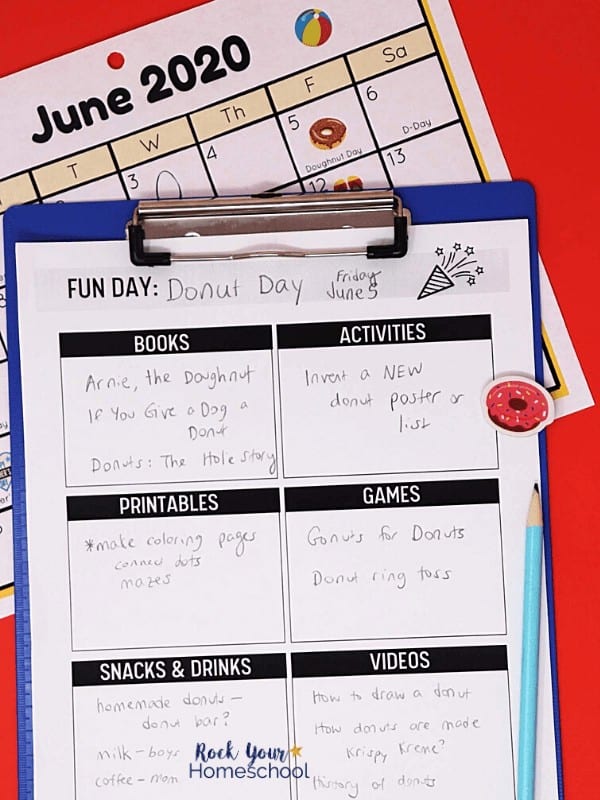 June 2020
T W Th F Sa
3 4 5 6
Doughnut Day
D-Day
12 13
FUN DAY: Donut Day Friday
June 5
BOOKS
Arnie, the Doughnut
If You Give a Dog a
Donut
Donuts: The Hole Story
ACTIVITIES
Invent a NEW
donut poster or
list
PRINTABLES
*make coloring pages
connect dots
mazes
GAMES
Gonuts for Donuts
Donut ring toss
SNACKS & DRINKS
homemade donuts –
donut bar?
milk – boys
coffee – mom
VIDEOS
How to draw a donut
How donuts are made
Krispy Kreme?
History of donuts
Rock Your
Homeschool